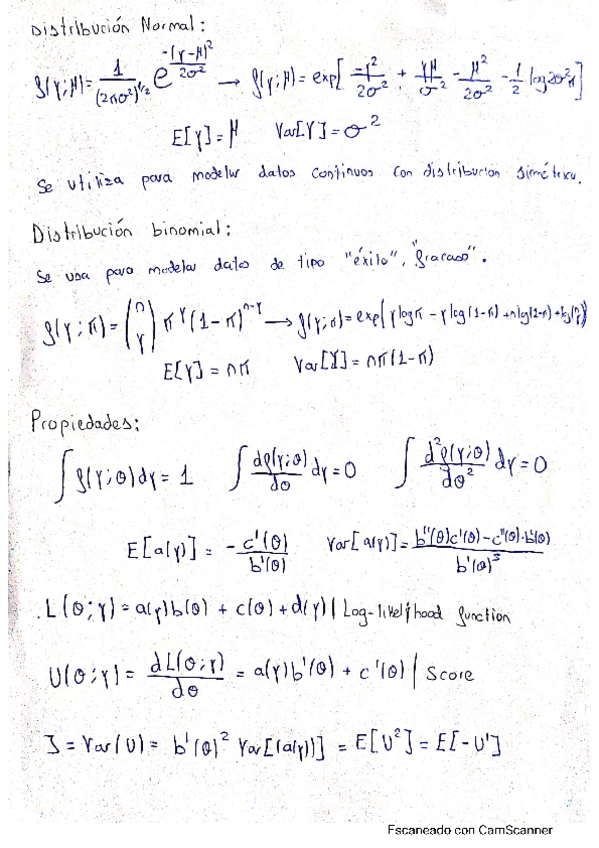 Distribución Normal:
f(y;μ) = 1/(2πσ²)^(1/2) e^(-(y-μ)²/2σ²) → f(y;μ) = exp[-y²/2σ² + yμ/σ² - μ²/2σ² - 1/2 log 2σ²π]
E[Y] = μ Var[Y] = σ²
Se utiliza para modelar datos continuos con distribucion simétrica.
Distribución binomial:
Se usa para modelar datos de tipo "éxito", "fracaso".
f(y;π) = (n y) π^y (1-π)^(n-y) → f(y;π) = exp(y log π - y log(1-π) + n log(1-π) + log(n y))
E[Y] = nπ Var[Y] = nπ(1-π)
Propiedades:
∫ f(y;θ)dy = 1 ∫ df(y;θ)/dθ dy = 0 ∫ d²f(y;θ)/dθ² dy = 0
E[a(y)] = -c'(θ)/b'(θ) Var[a(y)] = b''(θ)c'(θ) - c''(θ)·b'(θ)/b'(θ)³
L(θ;y) = a(y)b(θ) + c(θ) + d(y) | Log-likelihood function
U(θ;y) = dL(θ;y)/dθ = a(y)b'(θ) + c'(θ) | Score
J = Var(U) = b'(θ)² Var[(a(y))] = E[U²] = E[-U']
Escaneado con CamScanner